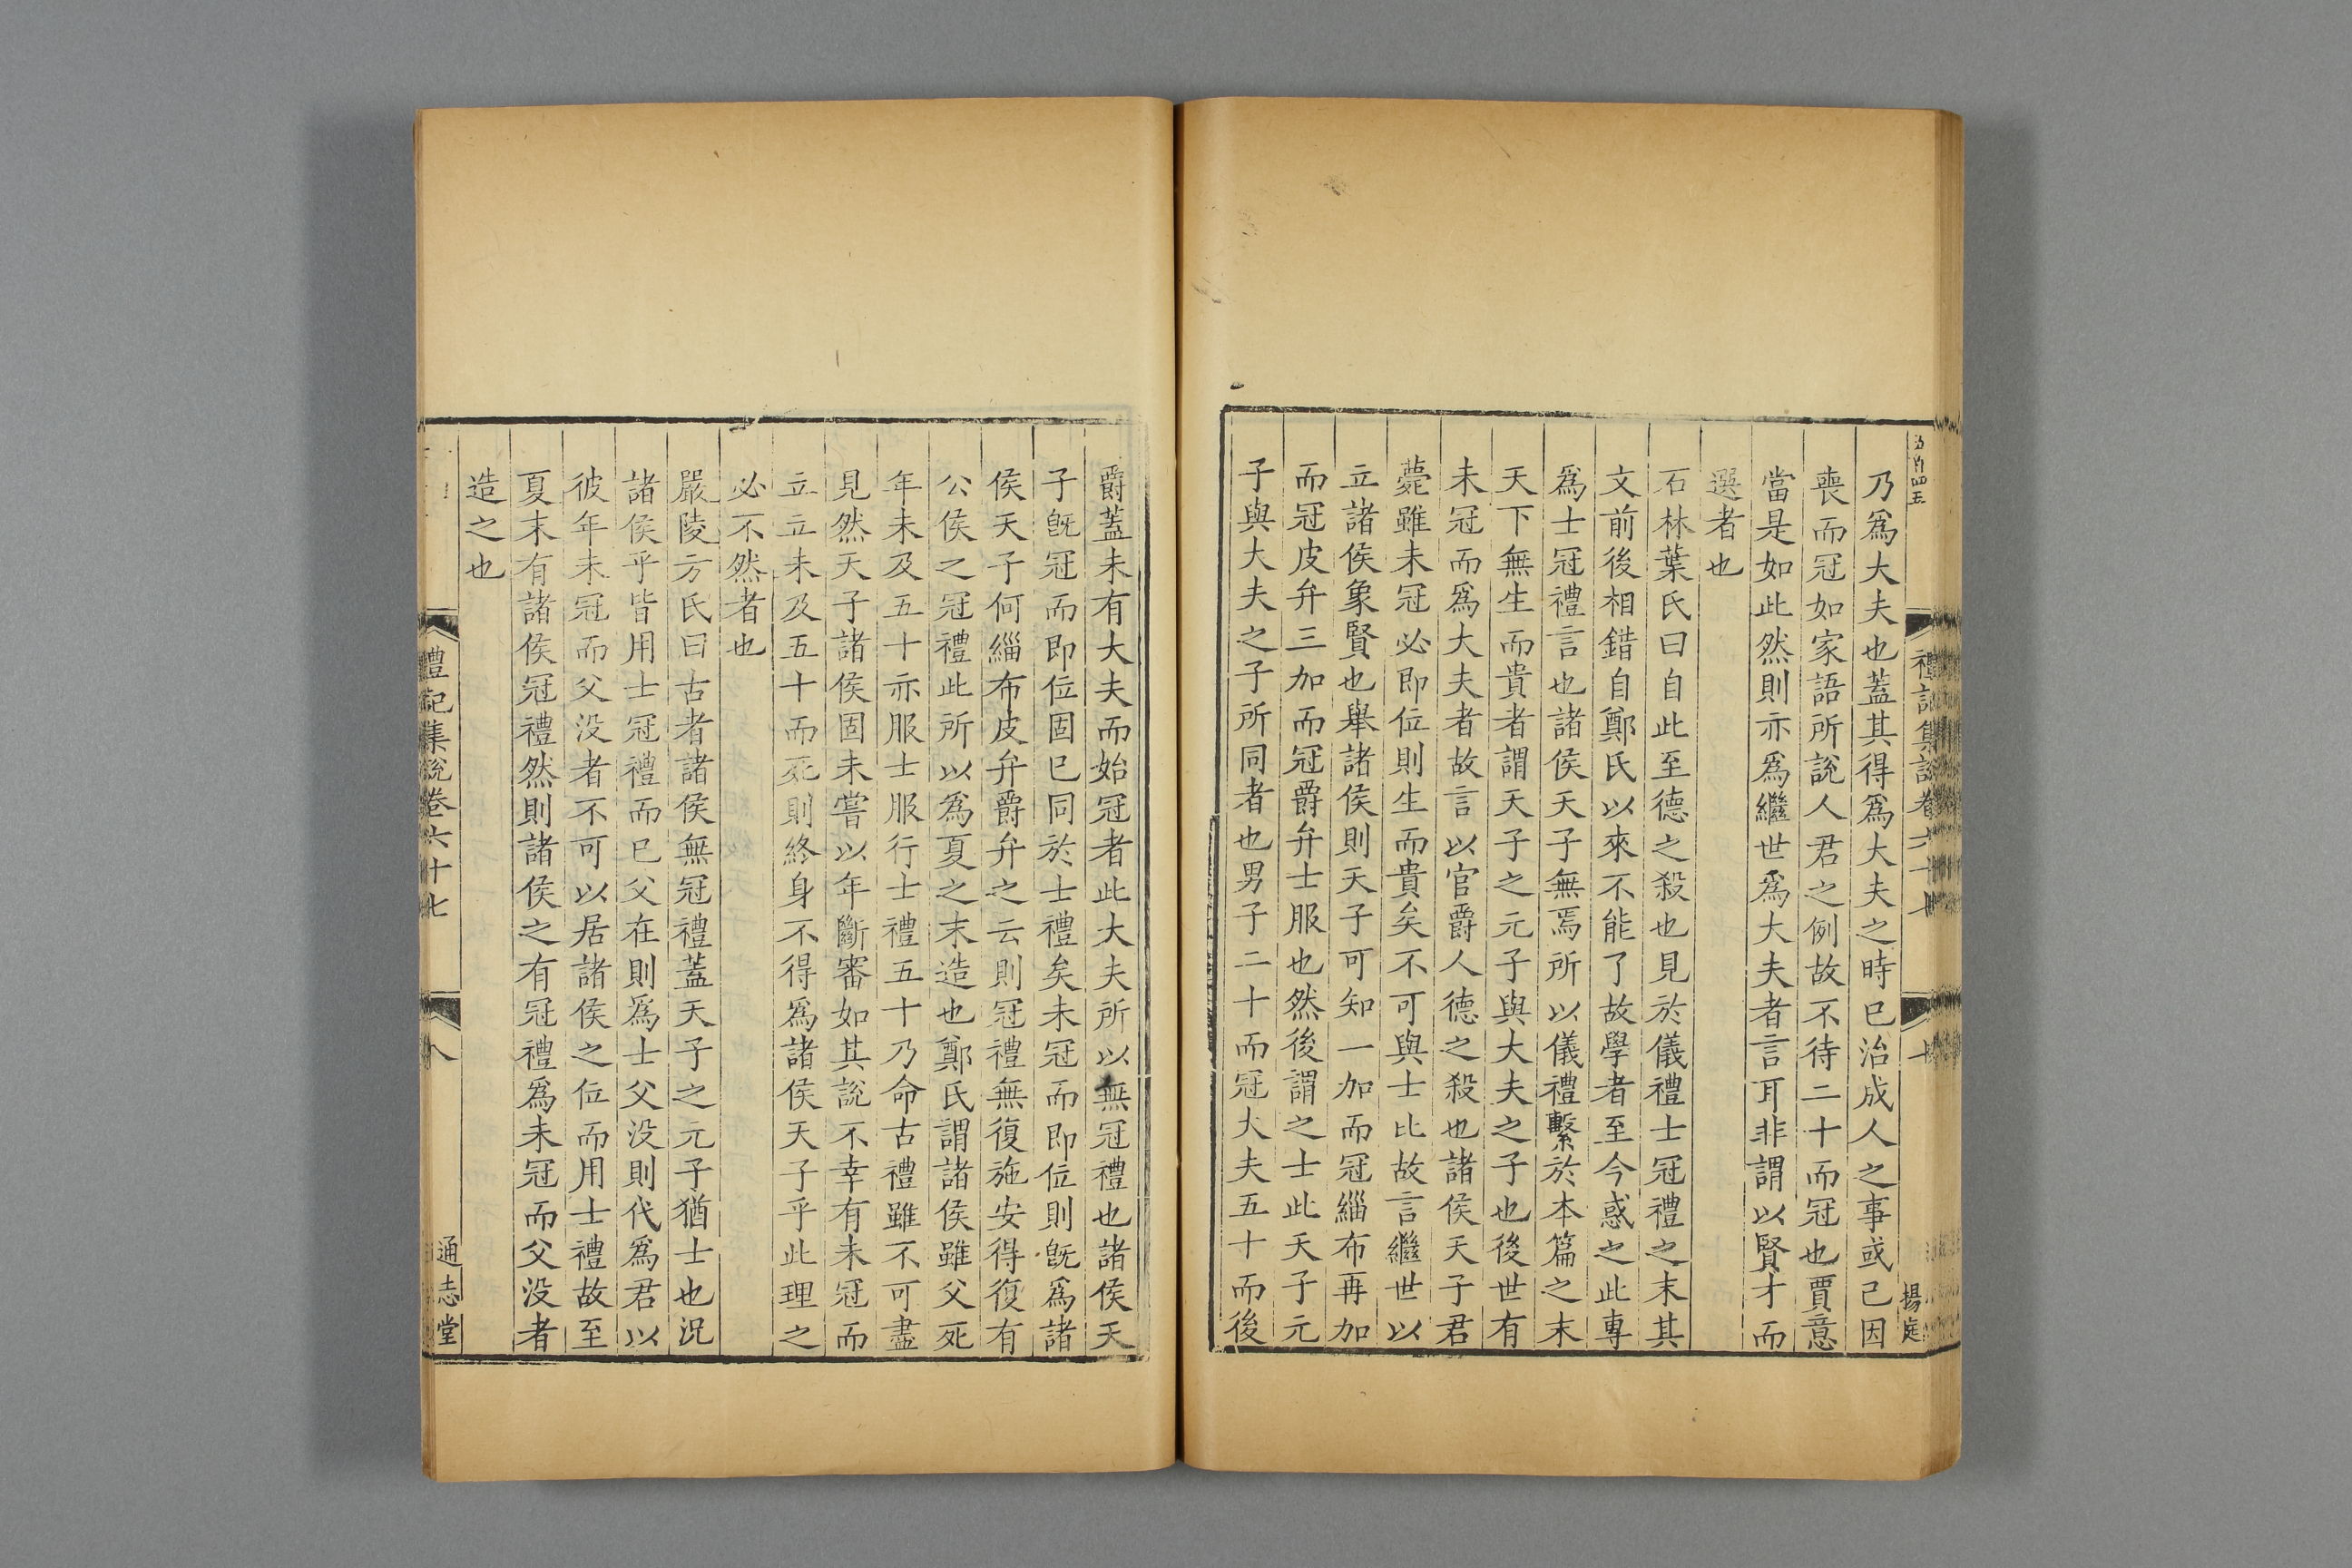 乃爲大夫也蓋其得爲大夫之時已治成人之事或已因
喪而冠如家語所說人君之例故不待二十而冠也賈意
當是如此然則亦爲繼世爲大夫者言耳非謂以賢才而
選者也
石林葉氏曰自此至德之殺也見於儀禮士冠禮之末其
文前後相錯自鄭氏以來不能了故學者至今惑之此專
爲士冠禮言也諸侯天子無焉所以儀禮繫於本篇之末
天下無生而貴者謂天子之元子與大夫之子也後世有
未冠而爲大夫者故言以官爵人德之殺也諸侯天子君
薨雖未冠必即位則生而貴矣不可與士比故言繼世以
立諸侯象賢也舉諸侯則天子可知一加而冠緇布再加
而冠皮弁三加而冠爵弁士服也然後謂之士此天子元
子與大夫之子所同者也男子二十而冠大夫五十而後
爵蓋未有大夫而始冠者此大夫所以無冠禮也諸侯天
子旣冠而即位固已同於士禮矣未冠而即位則旣爲諸
侯天子何緇布皮弁爵弁之云則冠禮無復施安得復有
公侯之冠禮此所以爲夏之末造也鄭氏謂諸侯雖父死
年未及五十亦服士服行士禮五十乃命古禮雖不可盡
見然天子諸侯固未嘗以年斷審如其說不幸有未冠而
立立未及五十而死則終身不得爲諸侯天子乎此理之
必不然者也
嚴陵方氏曰古者諸侯無冠禮蓋天子之元子猶士也況
諸侯乎皆用士冠禮而已父在則爲士父没則代爲君以
彼年未冠而父没者不可以居諸侯之位而用士禮故至
夏末有諸侯冠禮然則諸侯之有冠禮爲未冠而父没者
造之也
禮記集說卷六十七
八
通志堂